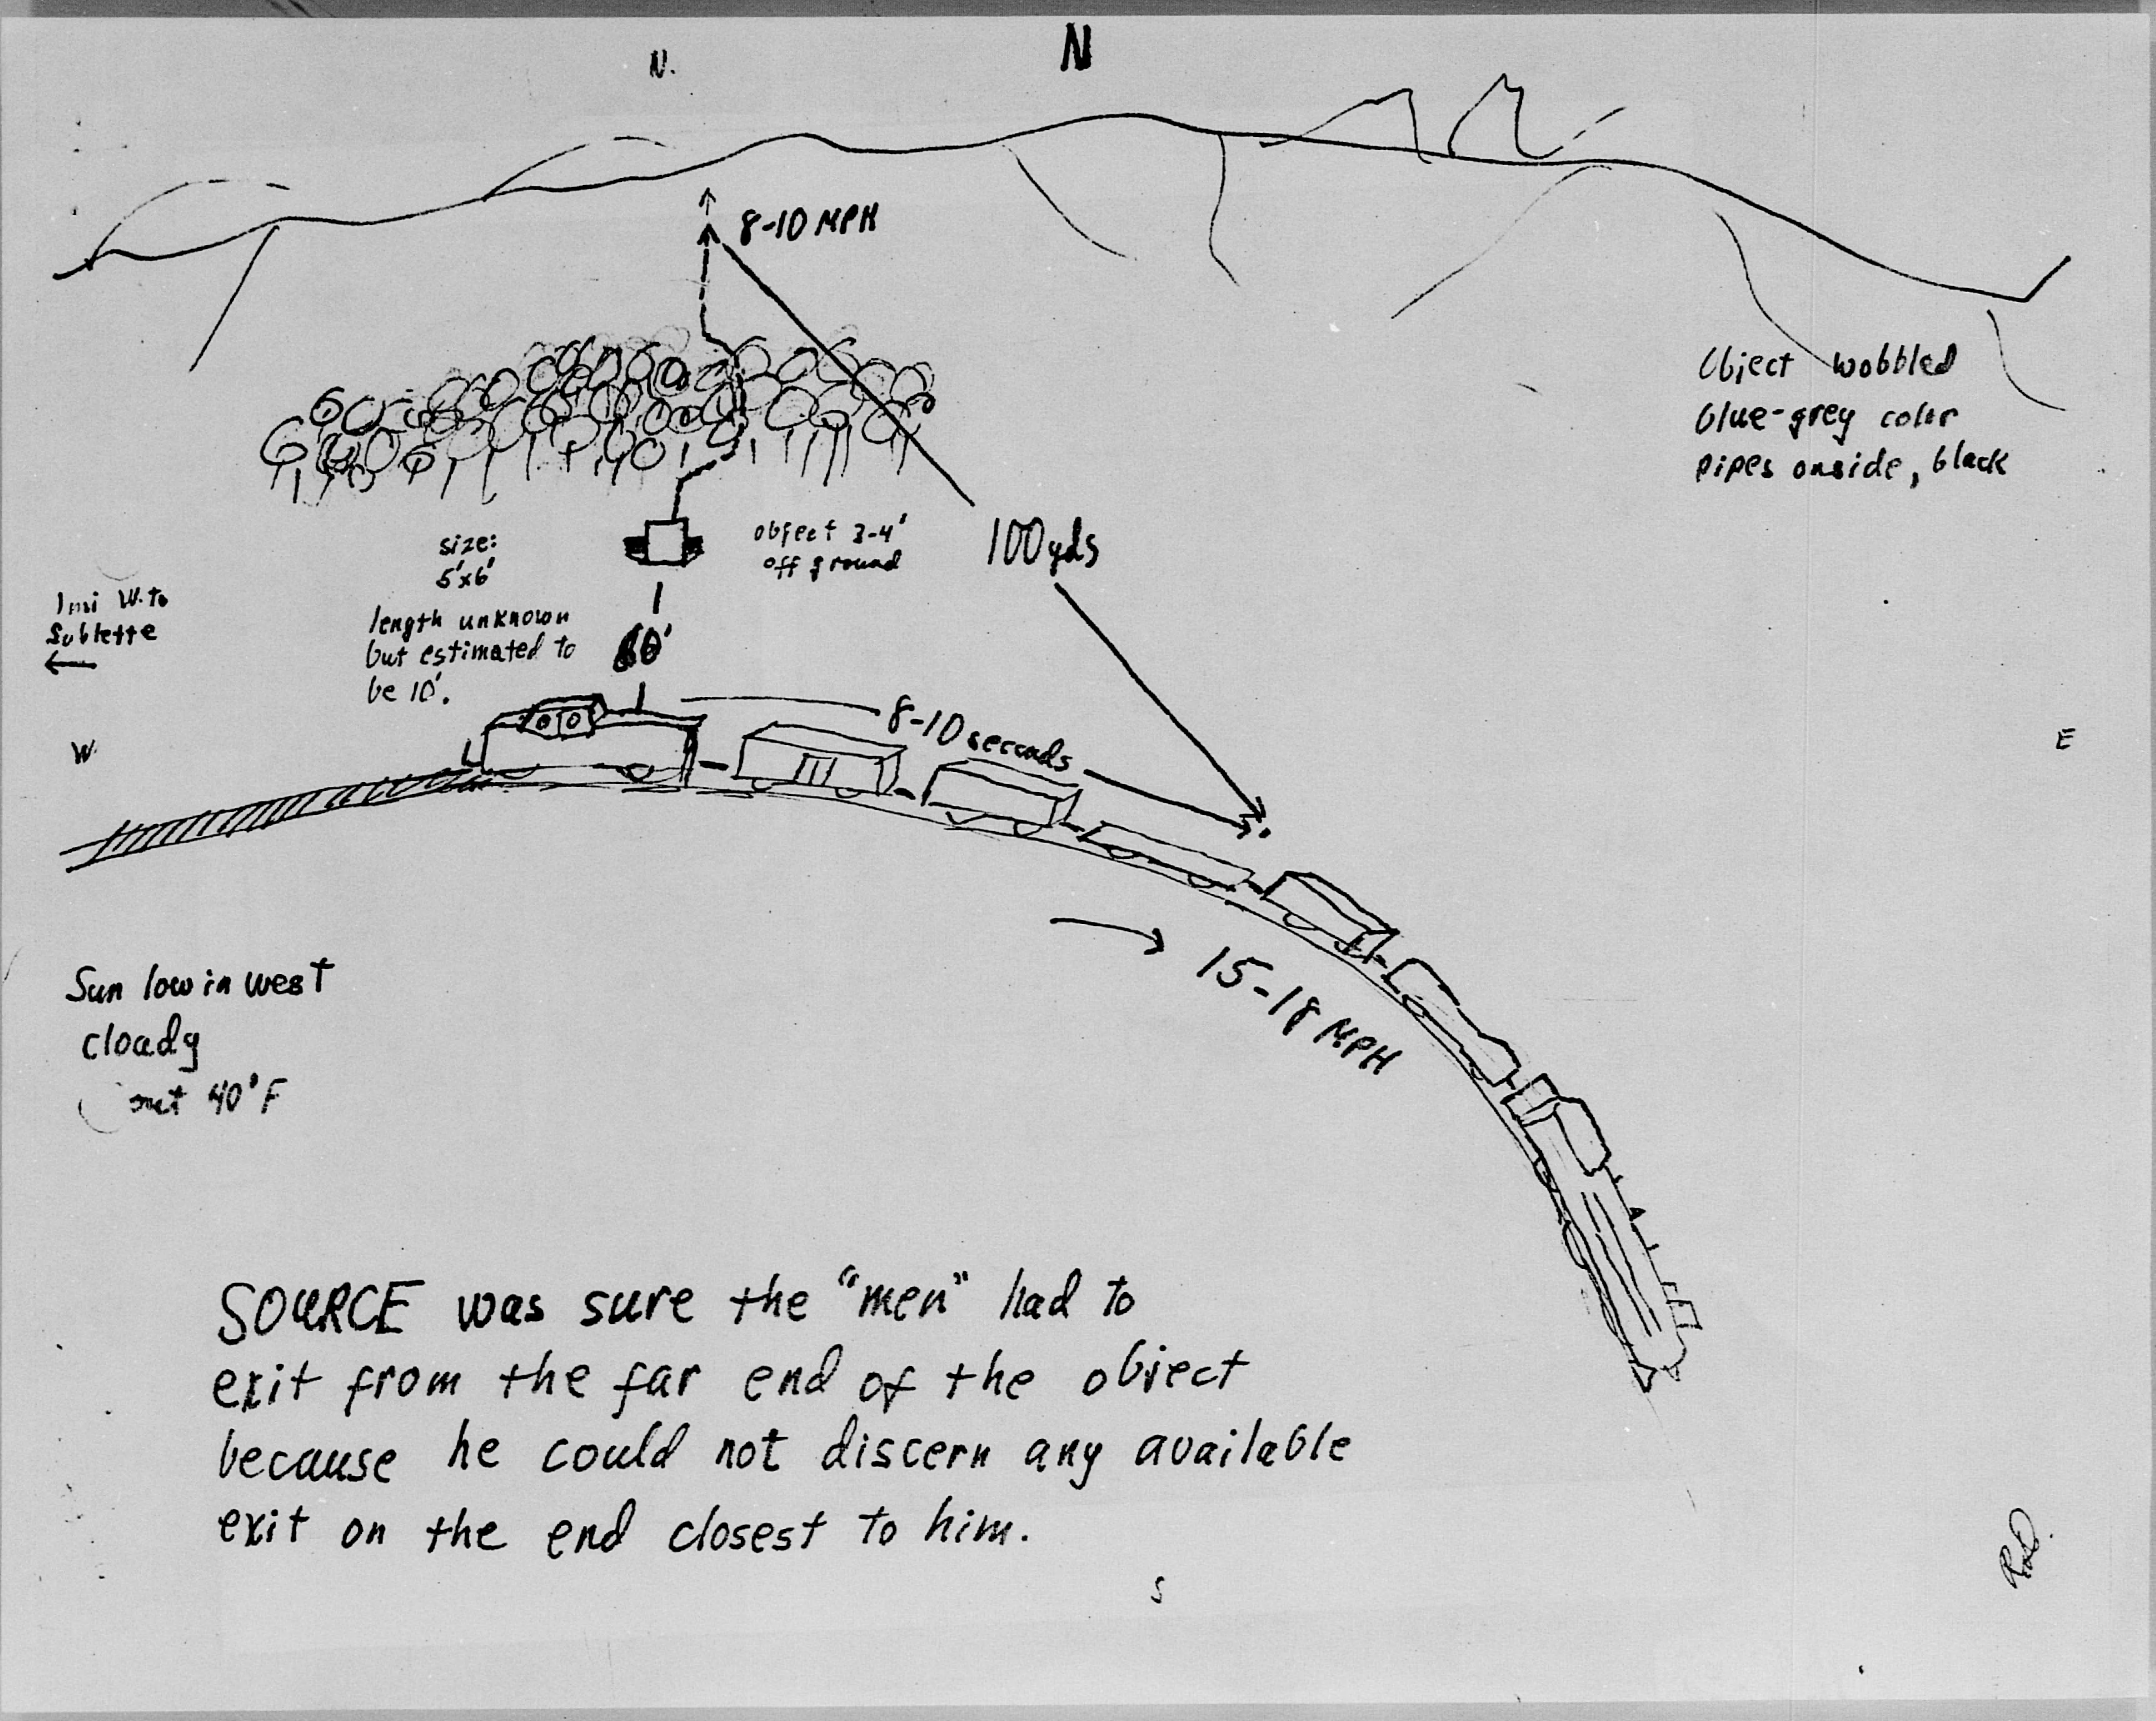 N.
N
8-10 MPH
Object wobbled
blue-grey color
pipes onside, black
size:
5'x6'
length unknown
but estimated to
be 10'.
object 3-4'
off ground
100yds
1 mi W. to
Sublette
←
60'
8-10 seconds
W
E
→ 15-18 MPH
Sun low in west
cloudy
40°F
SOURCE was sure the "men" had to
exit from the far end of the object
because he could not discern any available
exit on the end closest to him.
S